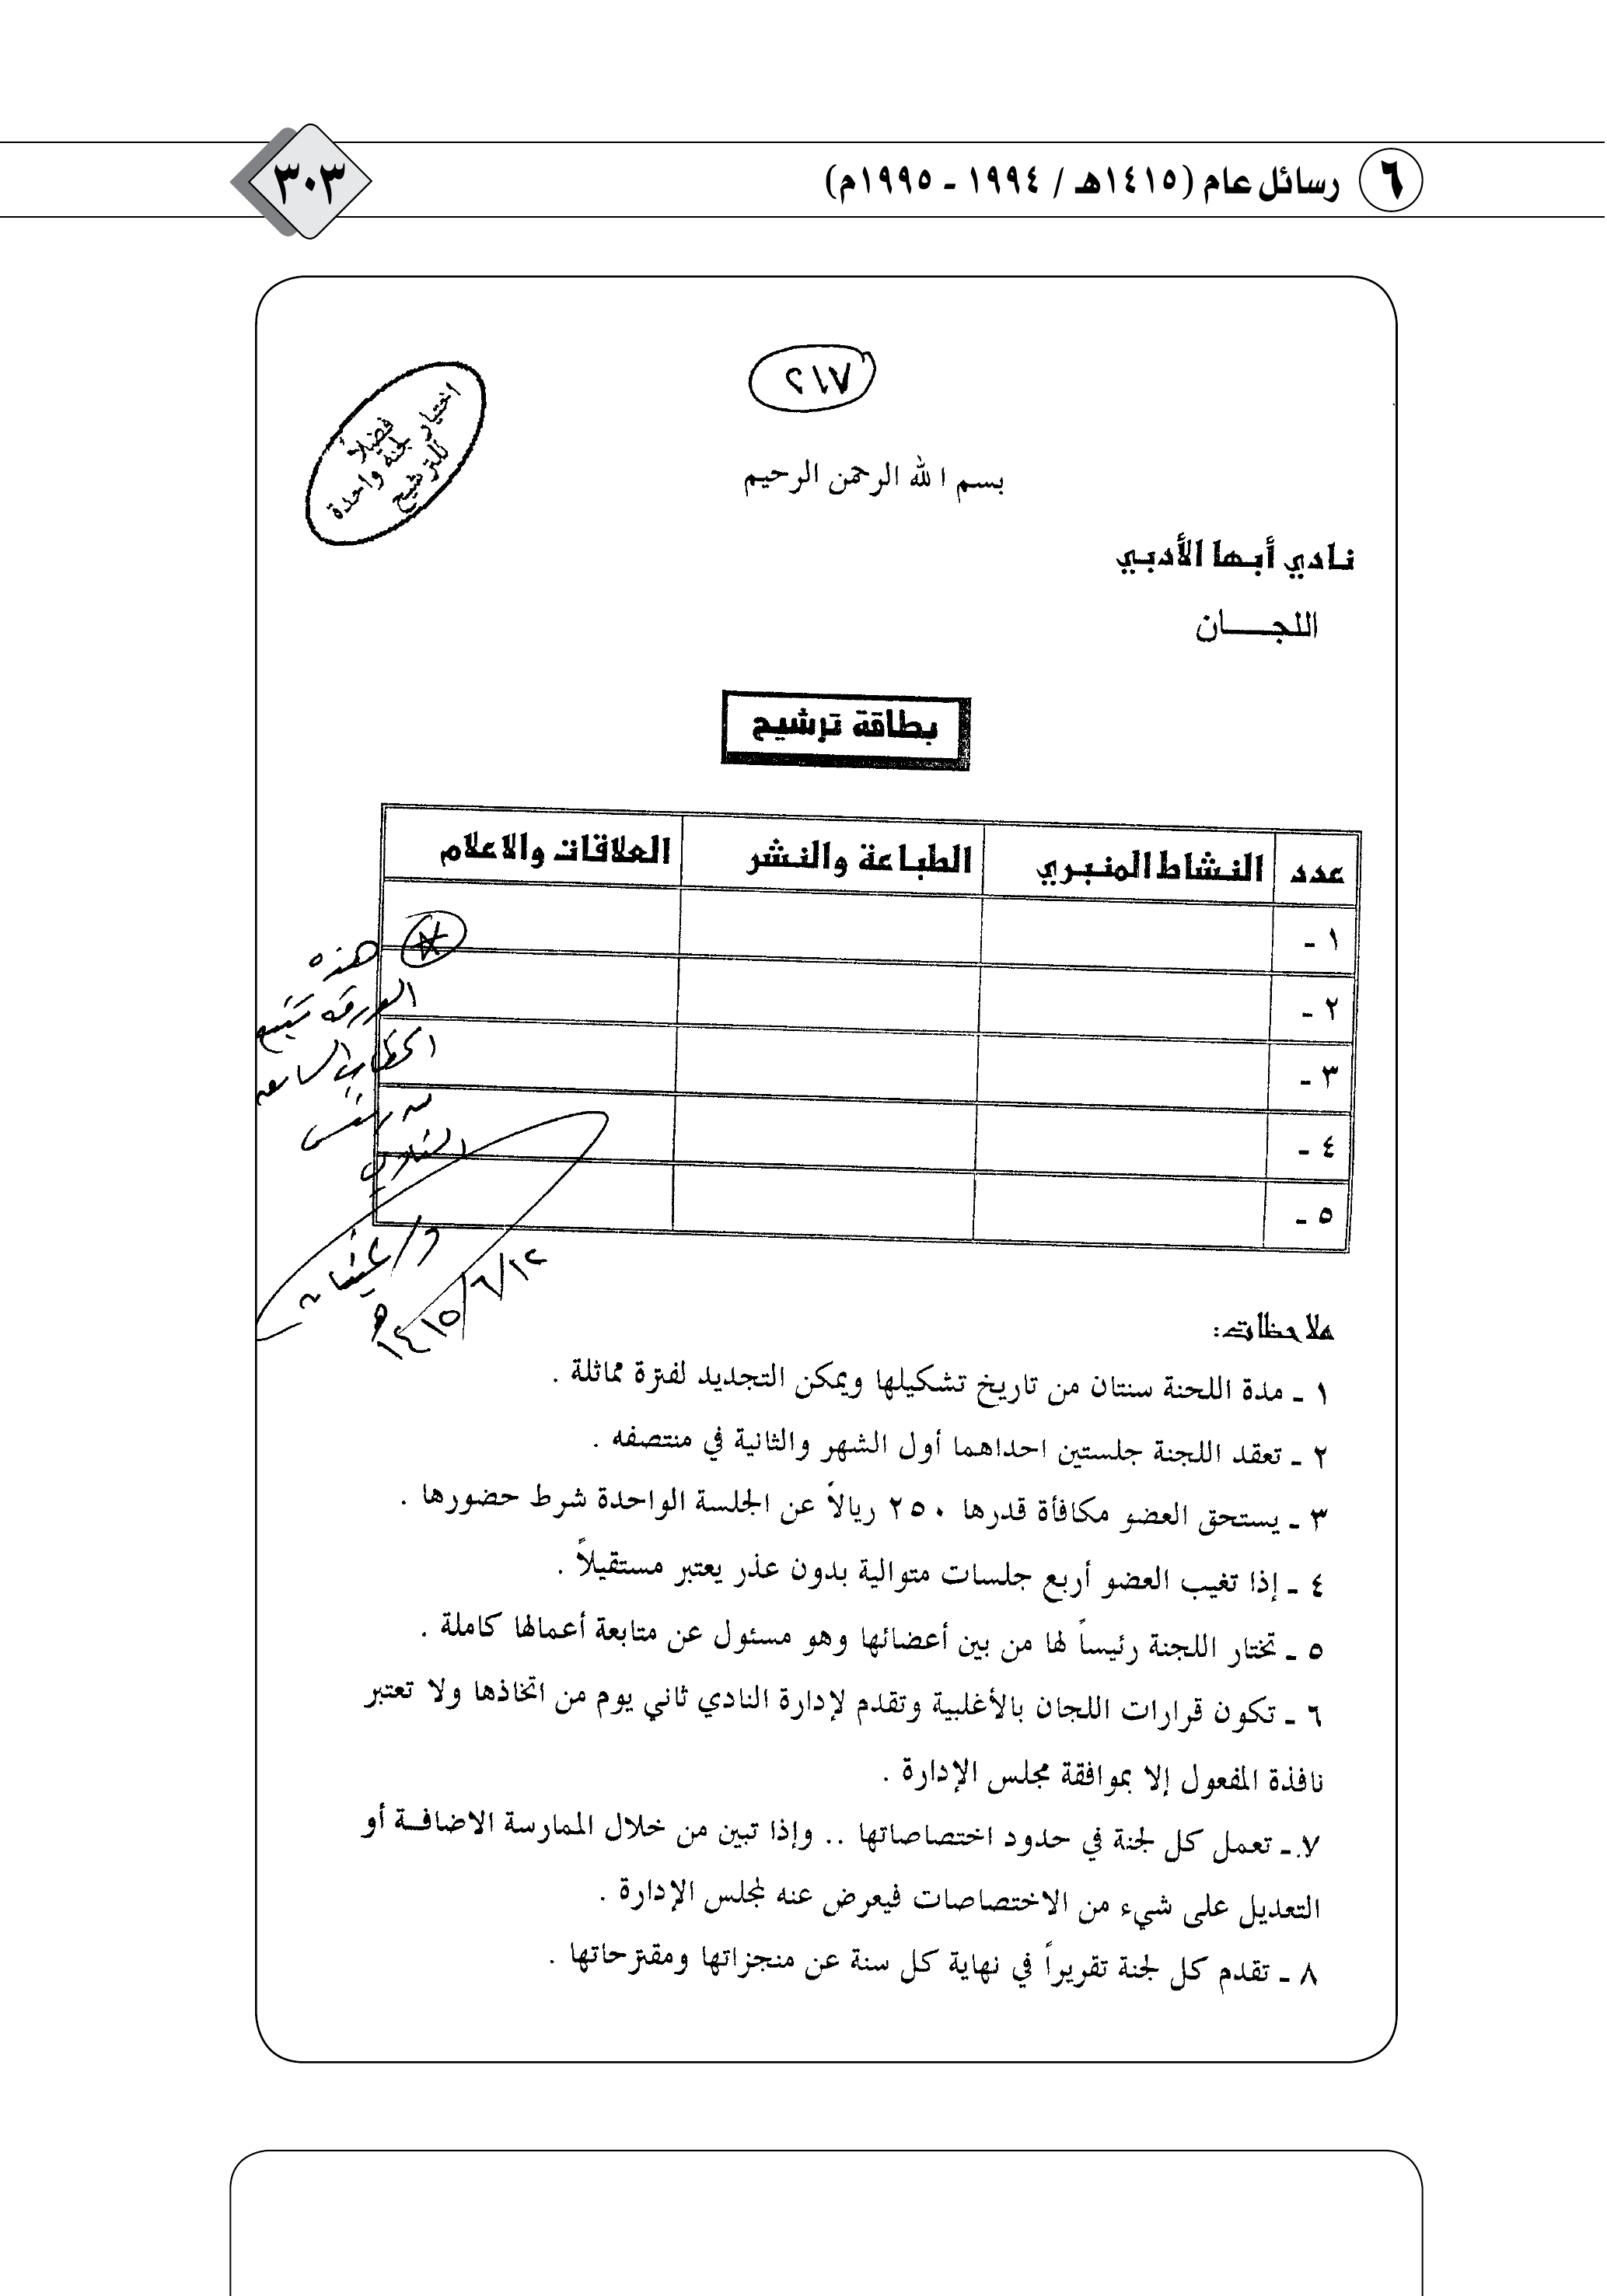 ٦ رسائل عام (١٤١٥هـ / ١٩٩٤ - ١٩٩٥م)
٣٠٣
٢١٧
فضلاً
اختيار لجنة واحدة
للترشيح
بسم الله الرحمن الرحيم
نادي أبها الأدبي
اللجـــــان
بطاقة ترشيح
عدد النشاط المنبري الطباعة والنشر العلاقات والاعلام
١ -
٢ -
٣ -
٤ -
٥ -
هذه
الورقة تتبع
الخطاب
١٤١٥/٦/١٢هـ
ملاحظات:
١ ـ مدة اللجنة سنتان من تاريخ تشكيلها ويمكن التجديد لفترة مماثلة .
٢ ـ تعقد اللجنة جلستين احداهما أول الشهر والثانية في منتصفه .
٣ ـ يستحق العضو مكافأة قدرها ٢٥٠ ريالاً عن الجلسة الواحدة شرط حضورها .
٤ ـ إذا تغيب العضو أربع جلسات متوالية بدون عذر يعتبر مستقيلاً .
٥ ـ تختار اللجنة رئيساً لها من بين أعضائها وهو مسئول عن متابعة أعمالها كاملة .
٦ ـ تكون قرارات اللجان بالأغلبية وتقدم لإدارة النادي ثاني يوم من اتخاذها ولا تعتبر
نافذة المفعول إلا بموافقة مجلس الإدارة .
٧ ـ تعمل كل لجنة في حدود اختصاصاتها .. وإذا تبين من خلال الممارسة الاضافــة أو
التعديل على شيء من الاختصاصات فيعرض عنه لمجلس الإدارة .
٨ ـ تقدم كل لجنة تقريراً في نهاية كل سنة عن منجزاتها ومقترحاتها .